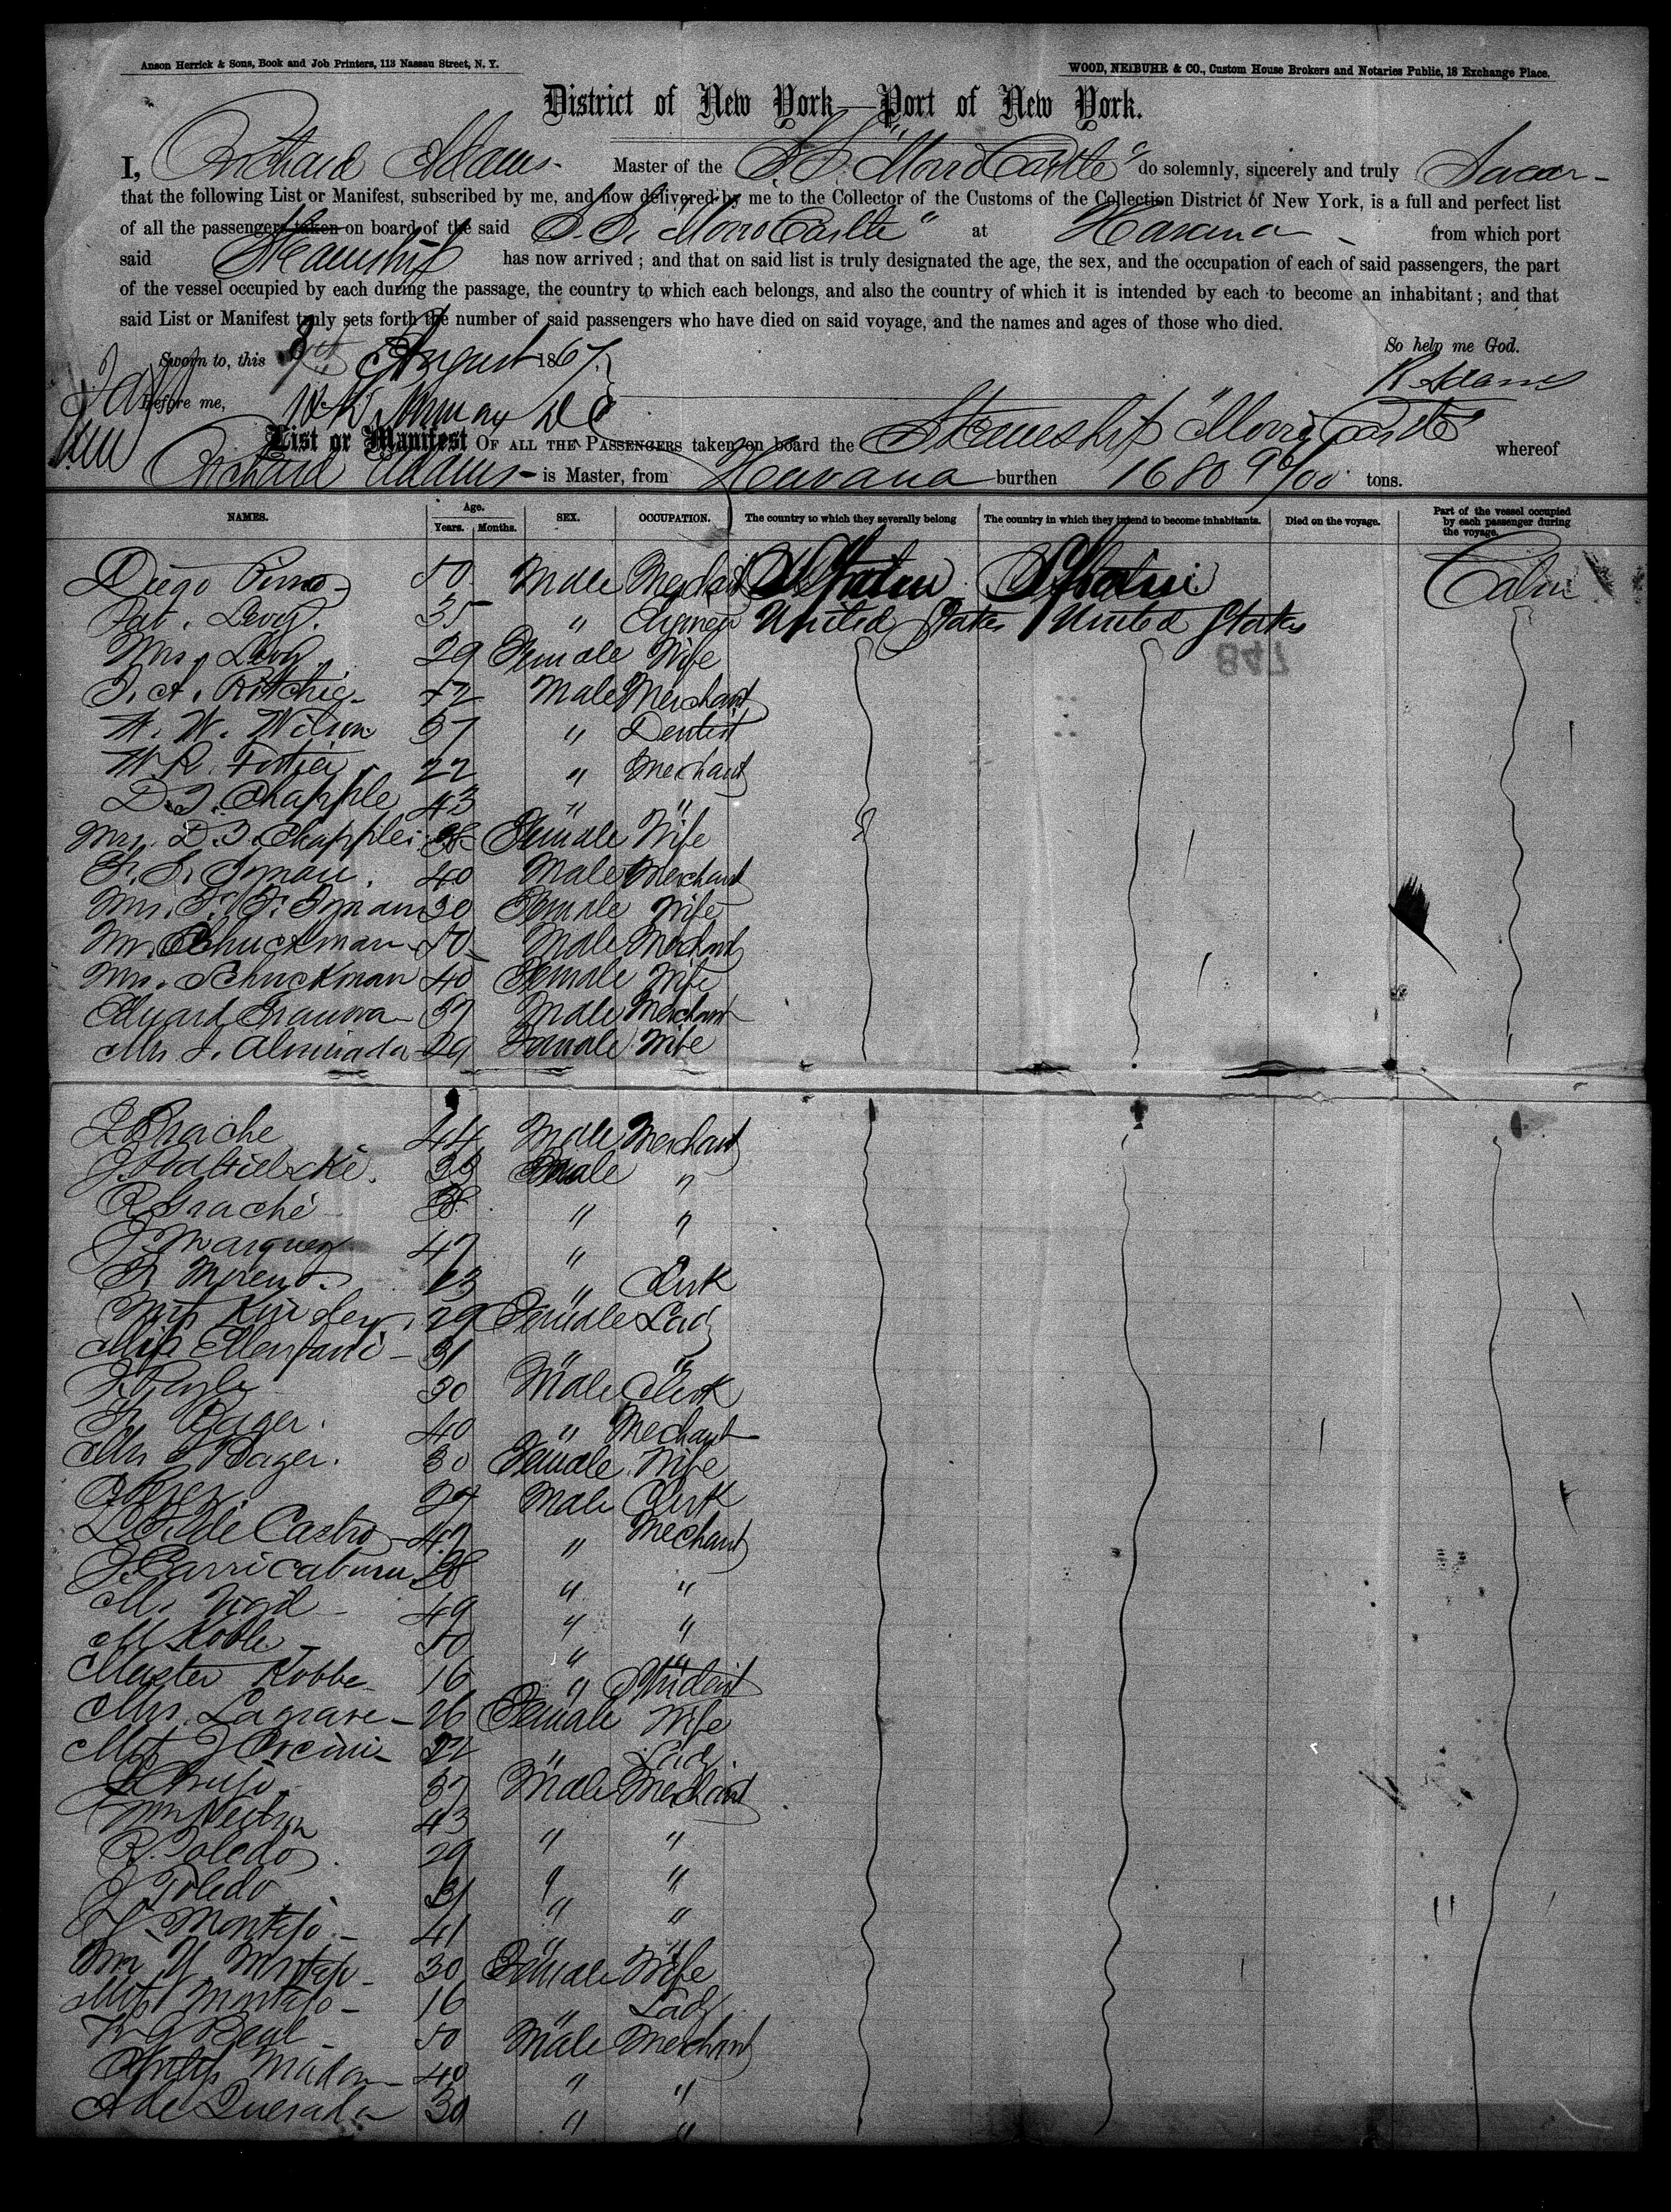 Anson Herrick & Sons, Book and Job Printers, 113 Nassau Street, N. Y.
WOOD, NEIBUHR & CO., Custom House Brokers and Notaries Public, 18 Exchange Place.
District of New York—Port of New York.
I, Richard Adams - Master of the S.S. "Morro Castle" do solemnly, sincerely and truly Swear -
that the following List or Manifest, subscribed by me, and now delivered by me to the Collector of the Customs of the Collection District of New York, is a full and perfect list
of all the passengers taken on board of the said S.S. "Morro Castle" at Havana - from which port
said Steamship has now arrived; and that on said list is truly designated the age, the sex, and the occupation of each of said passengers, the part
of the vessel occupied by each during the passage, the country to which each belongs, and also the country of which it is intended by each to become an inhabitant; and that
said List or Manifest truly sets forth the number of said passengers who have died on said voyage, and the names and ages of those who died.
So help me God.
Sworn to, this August 1867.
R Adams
Before me,
List or Manifest OF ALL THE PASSENGERS taken on board the Steamship "Morro Castle" whereof
Richard Adams - is Master, from Havana burthen 1680 90/100 tons.
NAMES. Age. Years. Months. SEX. OCCUPATION. The country to which they severally belong The country in which they intend to become inhabitants. Died on the voyage. Part of the vessel occupied by each passenger during the voyage.
Diego 50 Male Merchant Spain Spain Cabin
Levy. 35 " United States United States
Mrs. Levy 29 Female Wife
847
J. A. Ritchie - 42 Male Merchant
W. W. Wilson 37 " Dentist
W. R. Fortier 22 " Merchant
D. T. Chapple 43 " "
Mrs. D. T. Chapple 38 Female Wife
40 Male Merchant
Mrs. 30 Female Wife
Mr. Schuckman 50 Male Merchant
Mrs. Schuckman 40 Female Wife
Eduard 37 Male Merchant
Mrs J. 29 Female Wife
44 Male Merchant
J. 35 Male "
R 38 " "
J. Marquez 47 "
Moreno 23 " Clerk
Miss 29 Female Lady
Miss 31 " "
30 Male Clerk
Bager. 40 " Merchant
Mrs Bager. 30 Female Wife
27 Male Clerk
de Castro - 47 " Merchant
J. Barricaburu 28 " "
M. 49 " "
M Kobbe - 50 " "
Master Kobbe 16 " Student
Mrs. Lagrave - 26 Female Wife
Miss J 22 " Lady
37 Male Merchant
Wm 43 " "
R. Toledo 29 " "
J Toledo 31 " "
Montejo - 41 " "
Mrs Y Montejo - 30 Female Wife
Miss Montejo - 16 " Lady
Beal 50 Male Merchant
Madan - 40 " "
A de Quesada 30 " "